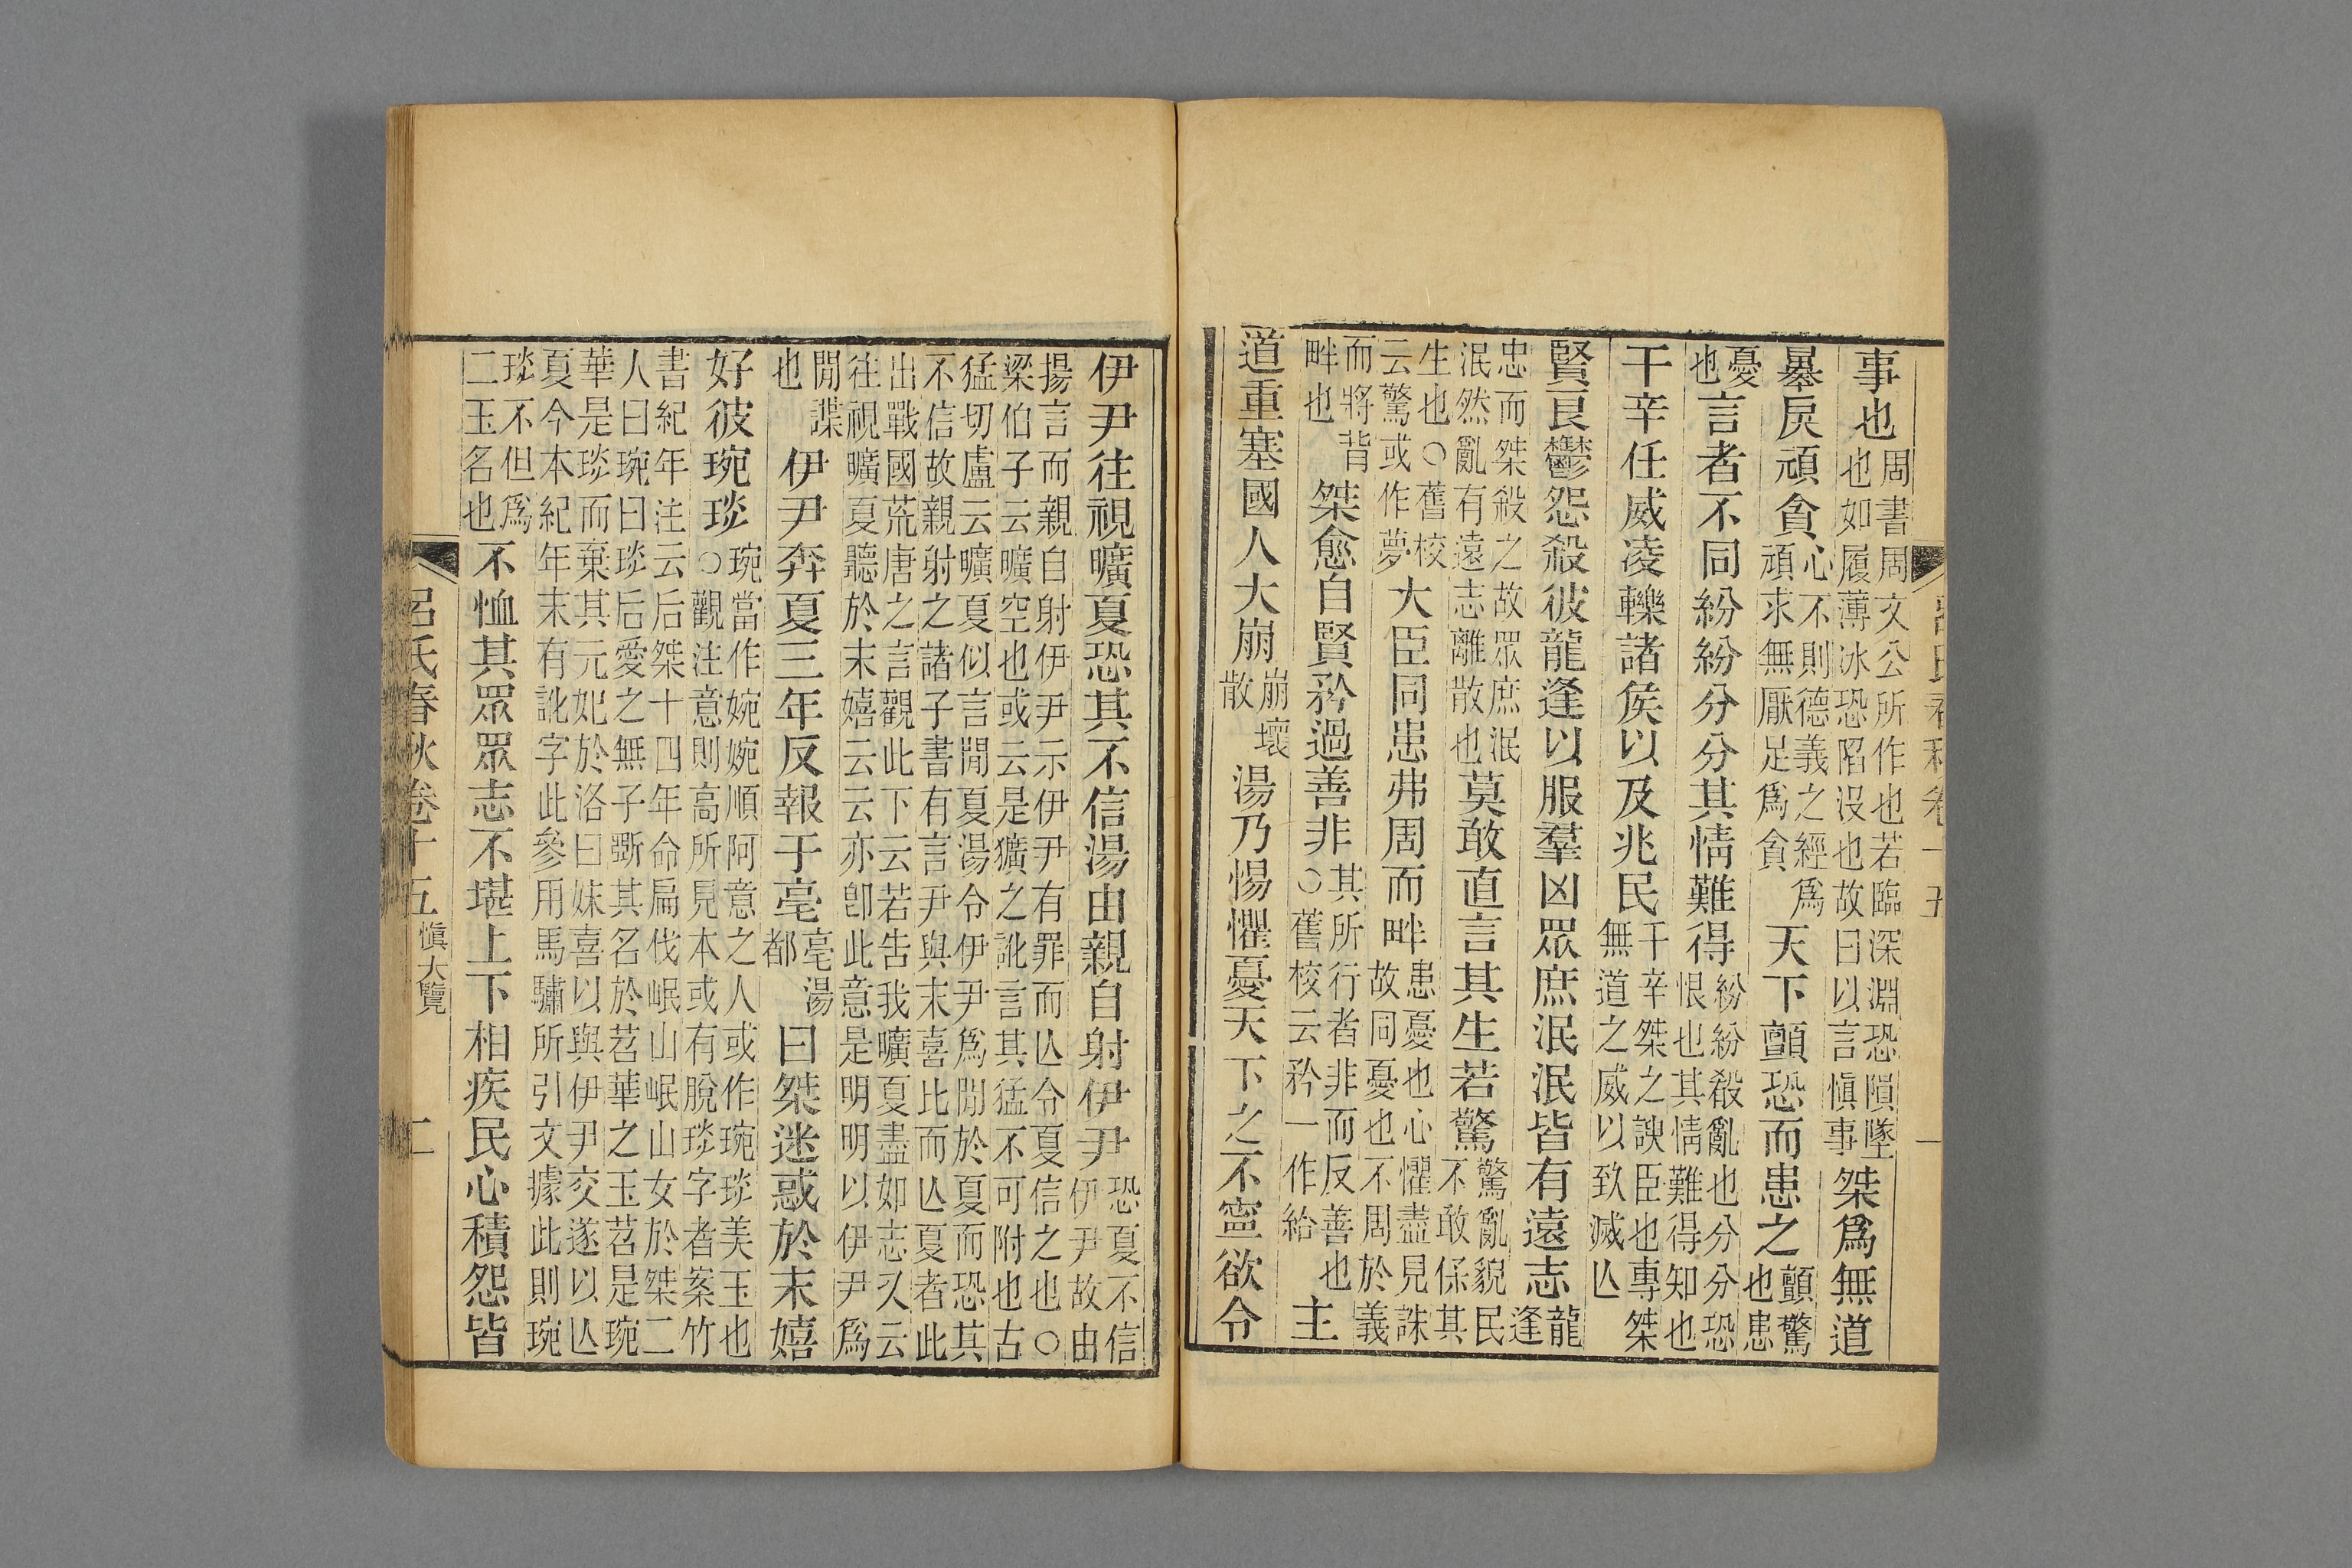 事也周書周文公所作也若臨深淵恐隕墜也如履薄冰恐陷沒也故曰以言愼事桀爲無道
暴戾頑貪心不則德義之經爲頑求無厭足爲貪天下顫恐而患之顫驚也患
憂也言者不同紛紛分分其情難得紛紛殽亂也分分恐恨也其情難得知也
干辛任威凌轢諸侯以及兆民干辛桀之諛臣也專桀無道之威以致滅亾
賢良鬱怨殺彼龍逢以服羣凶眾庶泯泯皆有遠志龍逢
忠而桀殺之故眾庶泯泯然亂有遠志離散也莫敢直言其生若驚驚亂貌民不敢保其
生也○舊校云驚或作夢大臣同患弗周而畔患憂也心懼盡見誅故同憂也不周於義
而將背畔也桀愈自賢矜過善非其所行者非而反善也○舊校云矜一作給主
道重塞國人大崩崩壞散湯乃惕懼憂天下之不寧欲令
伊尹往視曠夏恐其不信湯由親自射伊尹恐夏不信伊尹故由
揚言而親自射伊尹示伊尹有罪而亾令夏信之也○
梁伯子云曠空也或云是獷之訛言其猛不可附也古
猛切盧云曠夏似言閒夏湯令伊尹爲閒於夏而恐其
不信故親射之諸子書有言尹與末喜比而亾夏者此
出戰國荒唐之言觀此下云若告我曠夏盡如志又云
往視曠夏聽於末嬉云云亦卽此意是明明以伊尹爲
閒諜也伊尹奔夏三年反報于亳亳湯都曰桀迷惑於末嬉
好彼琬琰琬當作婉婉順阿意之人或作琬琰美玉也○觀注意則高所見本或有脫琰字者案竹
書紀年注云后桀十四年命扁伐岷山岷山女於桀二
人曰琬曰琰后愛之無子斲其名於苕華之玉苕是琬
華是琰而棄其元妃於洛曰妹喜以與伊尹交遂以亾
夏今本紀年末有訛字此參用馬驌所引文據此則琬
琰不但爲二玉名也不恤其眾眾志不堪上下相疾民心積怨皆
呂氏春秋卷十五愼大覽 二